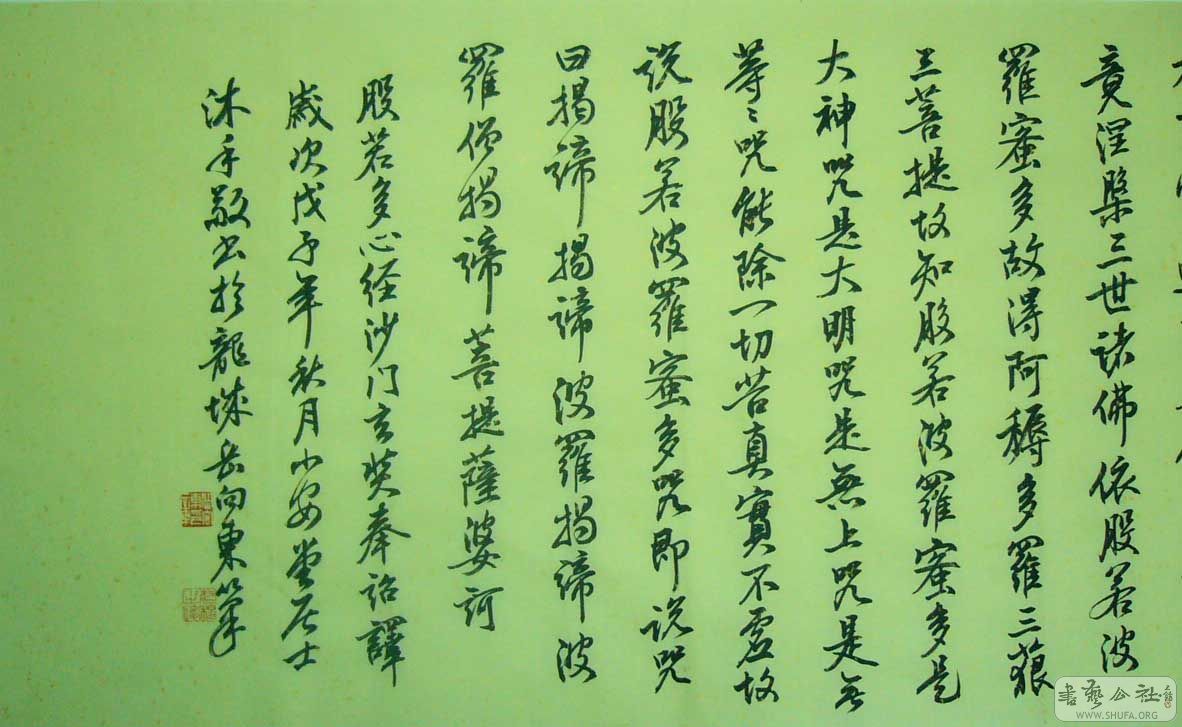 竟涅槃三世诸佛依股若波
羅蜜多故得阿耨多羅三藐
三菩提故知股若波羅蜜多是
大神咒是大明咒是無上咒是無
等々咒能除一切苦真實不虚故
说股若波羅蜜多咒即说咒
曰揭諦揭諦波羅揭諦波
羅僧揭諦菩提薩婆訶
股若多心经沙门玄奘奉诏譯
歲次戊子年秋月小安堂居士
沐手敬书於龍城岳向東筆
書藝公社
WWW.SHUFA.ORG